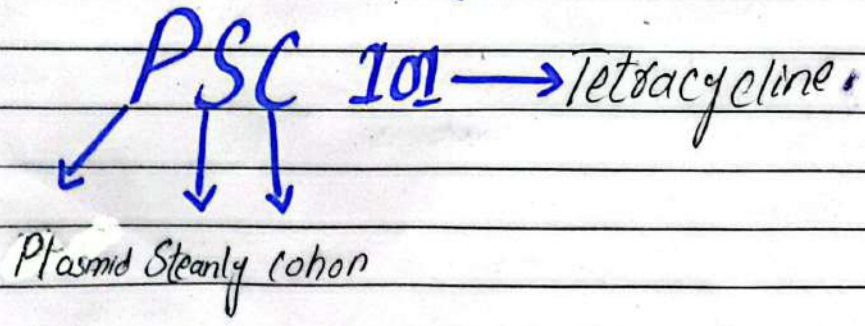 PSC 101 → Tetracycline.
Plasmid Steanly cohon